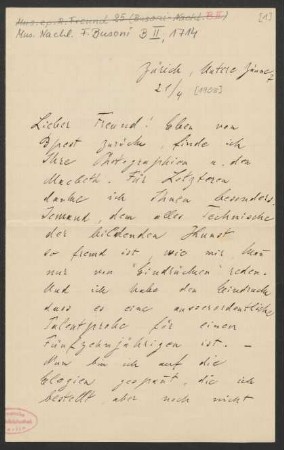 Mus. ep. R. Freund 25 (Busoni-Nachl. BII)
[1]
Mus. Nachl. F. Busoni B II, 1714
Zürich, Untere Zäune
25/4 [1908]
Lieber Freund! Eben von
Bpest zurück, finde ich
Ihre Photographien u. den
Macbeth. Für Letzteren
danke ich Ihnen besonders.
Jemand, dem alles Technische
der bildenden Kunst
so fremd ist, wie mir kann
nur von "Eindrücken" reden.
Und ich habe den Eindruck
dass es eine ausserordentliche
Talentprobe für einen
Fünfzehnjährigen ist. —
Nun bin ich auf die
Elegien gespannt, die ich
bestellt aber noch nicht